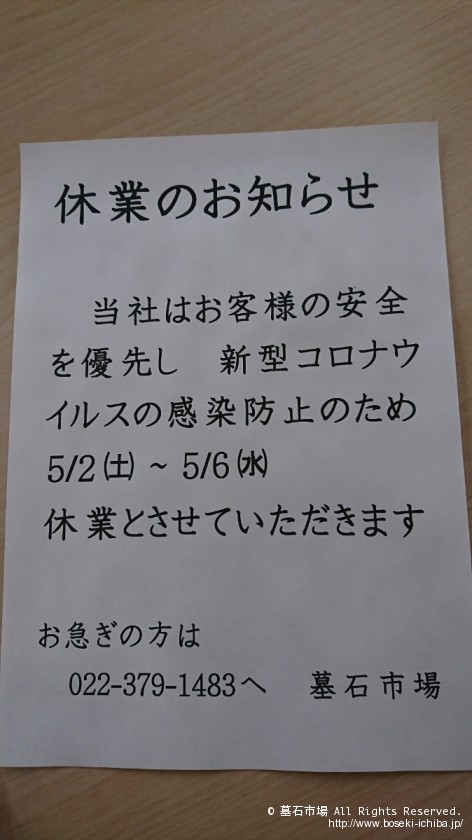 休業のお知らせ
当社はお客様の安全
を優先し　新型コロナウ
イルスの感染防止のため
5/2㈯ ~ 5/6㈬
休業とさせていただきます
お急ぎの方は
022-379-1483へ　墓石市場
© 墓石市場 All Rights Reserved.
http://www.boseki-ichiba.jp/